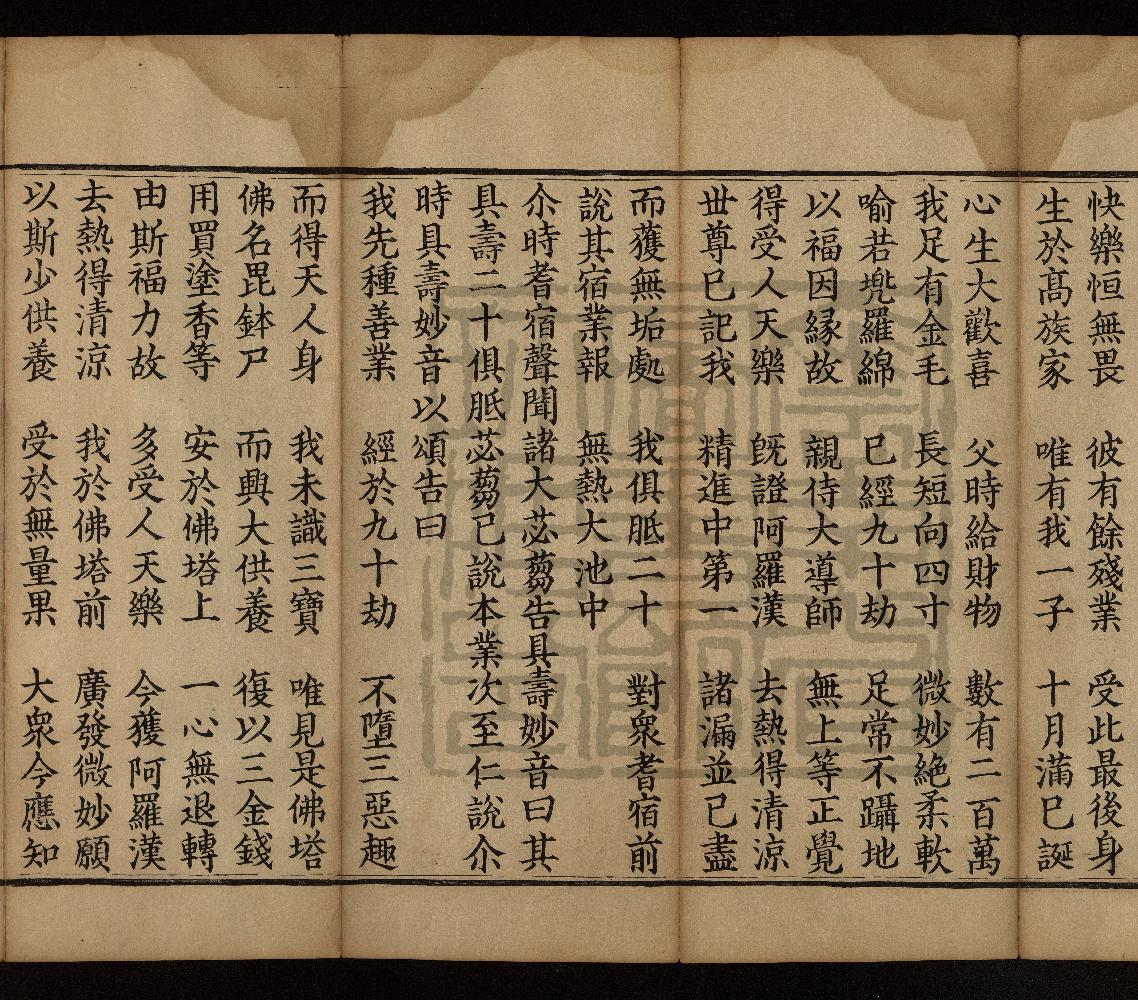 快樂恒無畏　彼有餘殘業　受此最後身
生於髙族家　唯有我一子　十月滿巳誕
心生大歡喜　父時給財物　數有二百萬
我足有金毛　長短向四寸　微妙絶柔軟
喻若兠羅綿　巳經九十劫　足常不躡地
以福因縁故　親侍大導師　無上等正覺
得受人天樂　旣證阿羅漢　去熱得清涼
丗尊巳記我　精進中第一　諸漏並巳盡
而獲無垢處　我俱胝二十　對衆耆宿前
說其宿業報　無熱大池中
尒時耆宿聲聞諸大苾蒭告具壽妙音曰其
具壽二十俱胝苾蒭巳說本業次至仁說尒
時具壽妙音以頌告曰
我先種善業　經於九十劫　不墮三惡趣
而得天人身　我未識三寶　唯見是佛塔
佛名毘鉢尸　而興大供養　復以三金錢
用買塗香等　安於佛塔上　一心無退轉
由斯福力故　多受人天樂　今獲阿羅漢
去熱得清涼　我於佛塔前　廣發微妙願
以斯少供養　受於無量果　大衆今應知